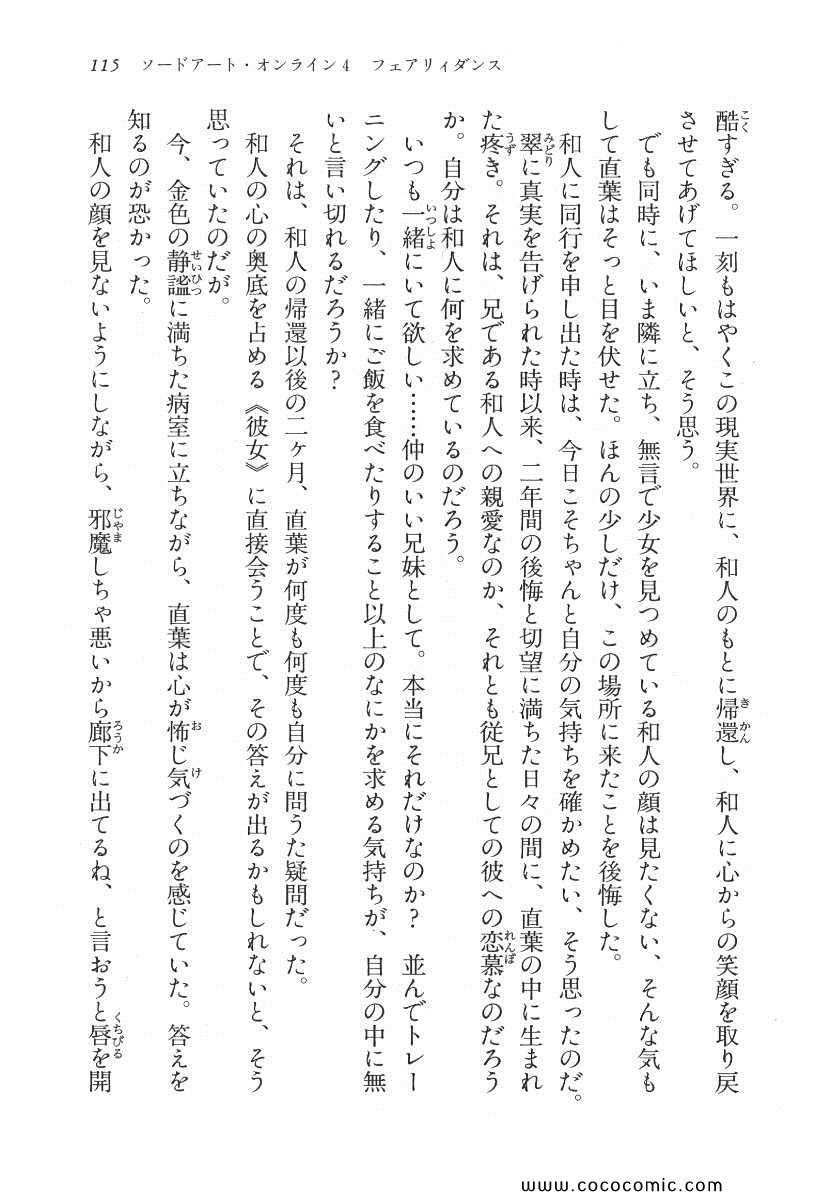 115　ソードアート・オンライン4　フェアリィダンス
酷すぎる。一刻もはやくこの現実世界に、和人のもとに帰還し、和人に心からの笑顔を取り戻
させてあげてほしいと、そう思う。
　でも同時に、いま隣に立ち、無言で少女を見つめている和人の顔は見たくない、そんな気も
して直葉はそっと目を伏せた。ほんの少しだけ、この場所に来たことを後悔した。
　和人に同行を申し出た時は、今日こそちゃんと自分の気持ちを確かめたい、そう思ったのだ。
　翠に真実を告げられた時以来、二年間の後悔と切望に満ちた日々の間に、直葉の中に生まれ
た疼き。それは、兄である和人への親愛なのか、それとも従兄としての彼への恋慕なのだろう
か。自分は和人に何を求めているのだろう。
　いつも一緒にいて欲しい……仲のいい兄妹として。本当にそれだけなのか？　並んでトレー
ニングしたり、一緒にご飯を食べたりすること以上のなにかを求める気持ちが、自分の中に無
いと言い切れるだろうか？
　それは、和人の帰還以後の二ヶ月、直葉が何度も何度も自分に問うた疑問だった。
　和人の心の奥底を占める《彼女》に直接会うことで、その答えが出るかもしれないと、そう
思っていたのだが。
　今、金色の静謐に満ちた病室に立ちながら、直葉は心が怖じ気づくのを感じていた。答えを
知るのが恐かった。
　和人の顔を見ないようにしながら、邪魔しちゃ悪いから廊下に出てるね、と言おうと唇を開
www.cococomic.com